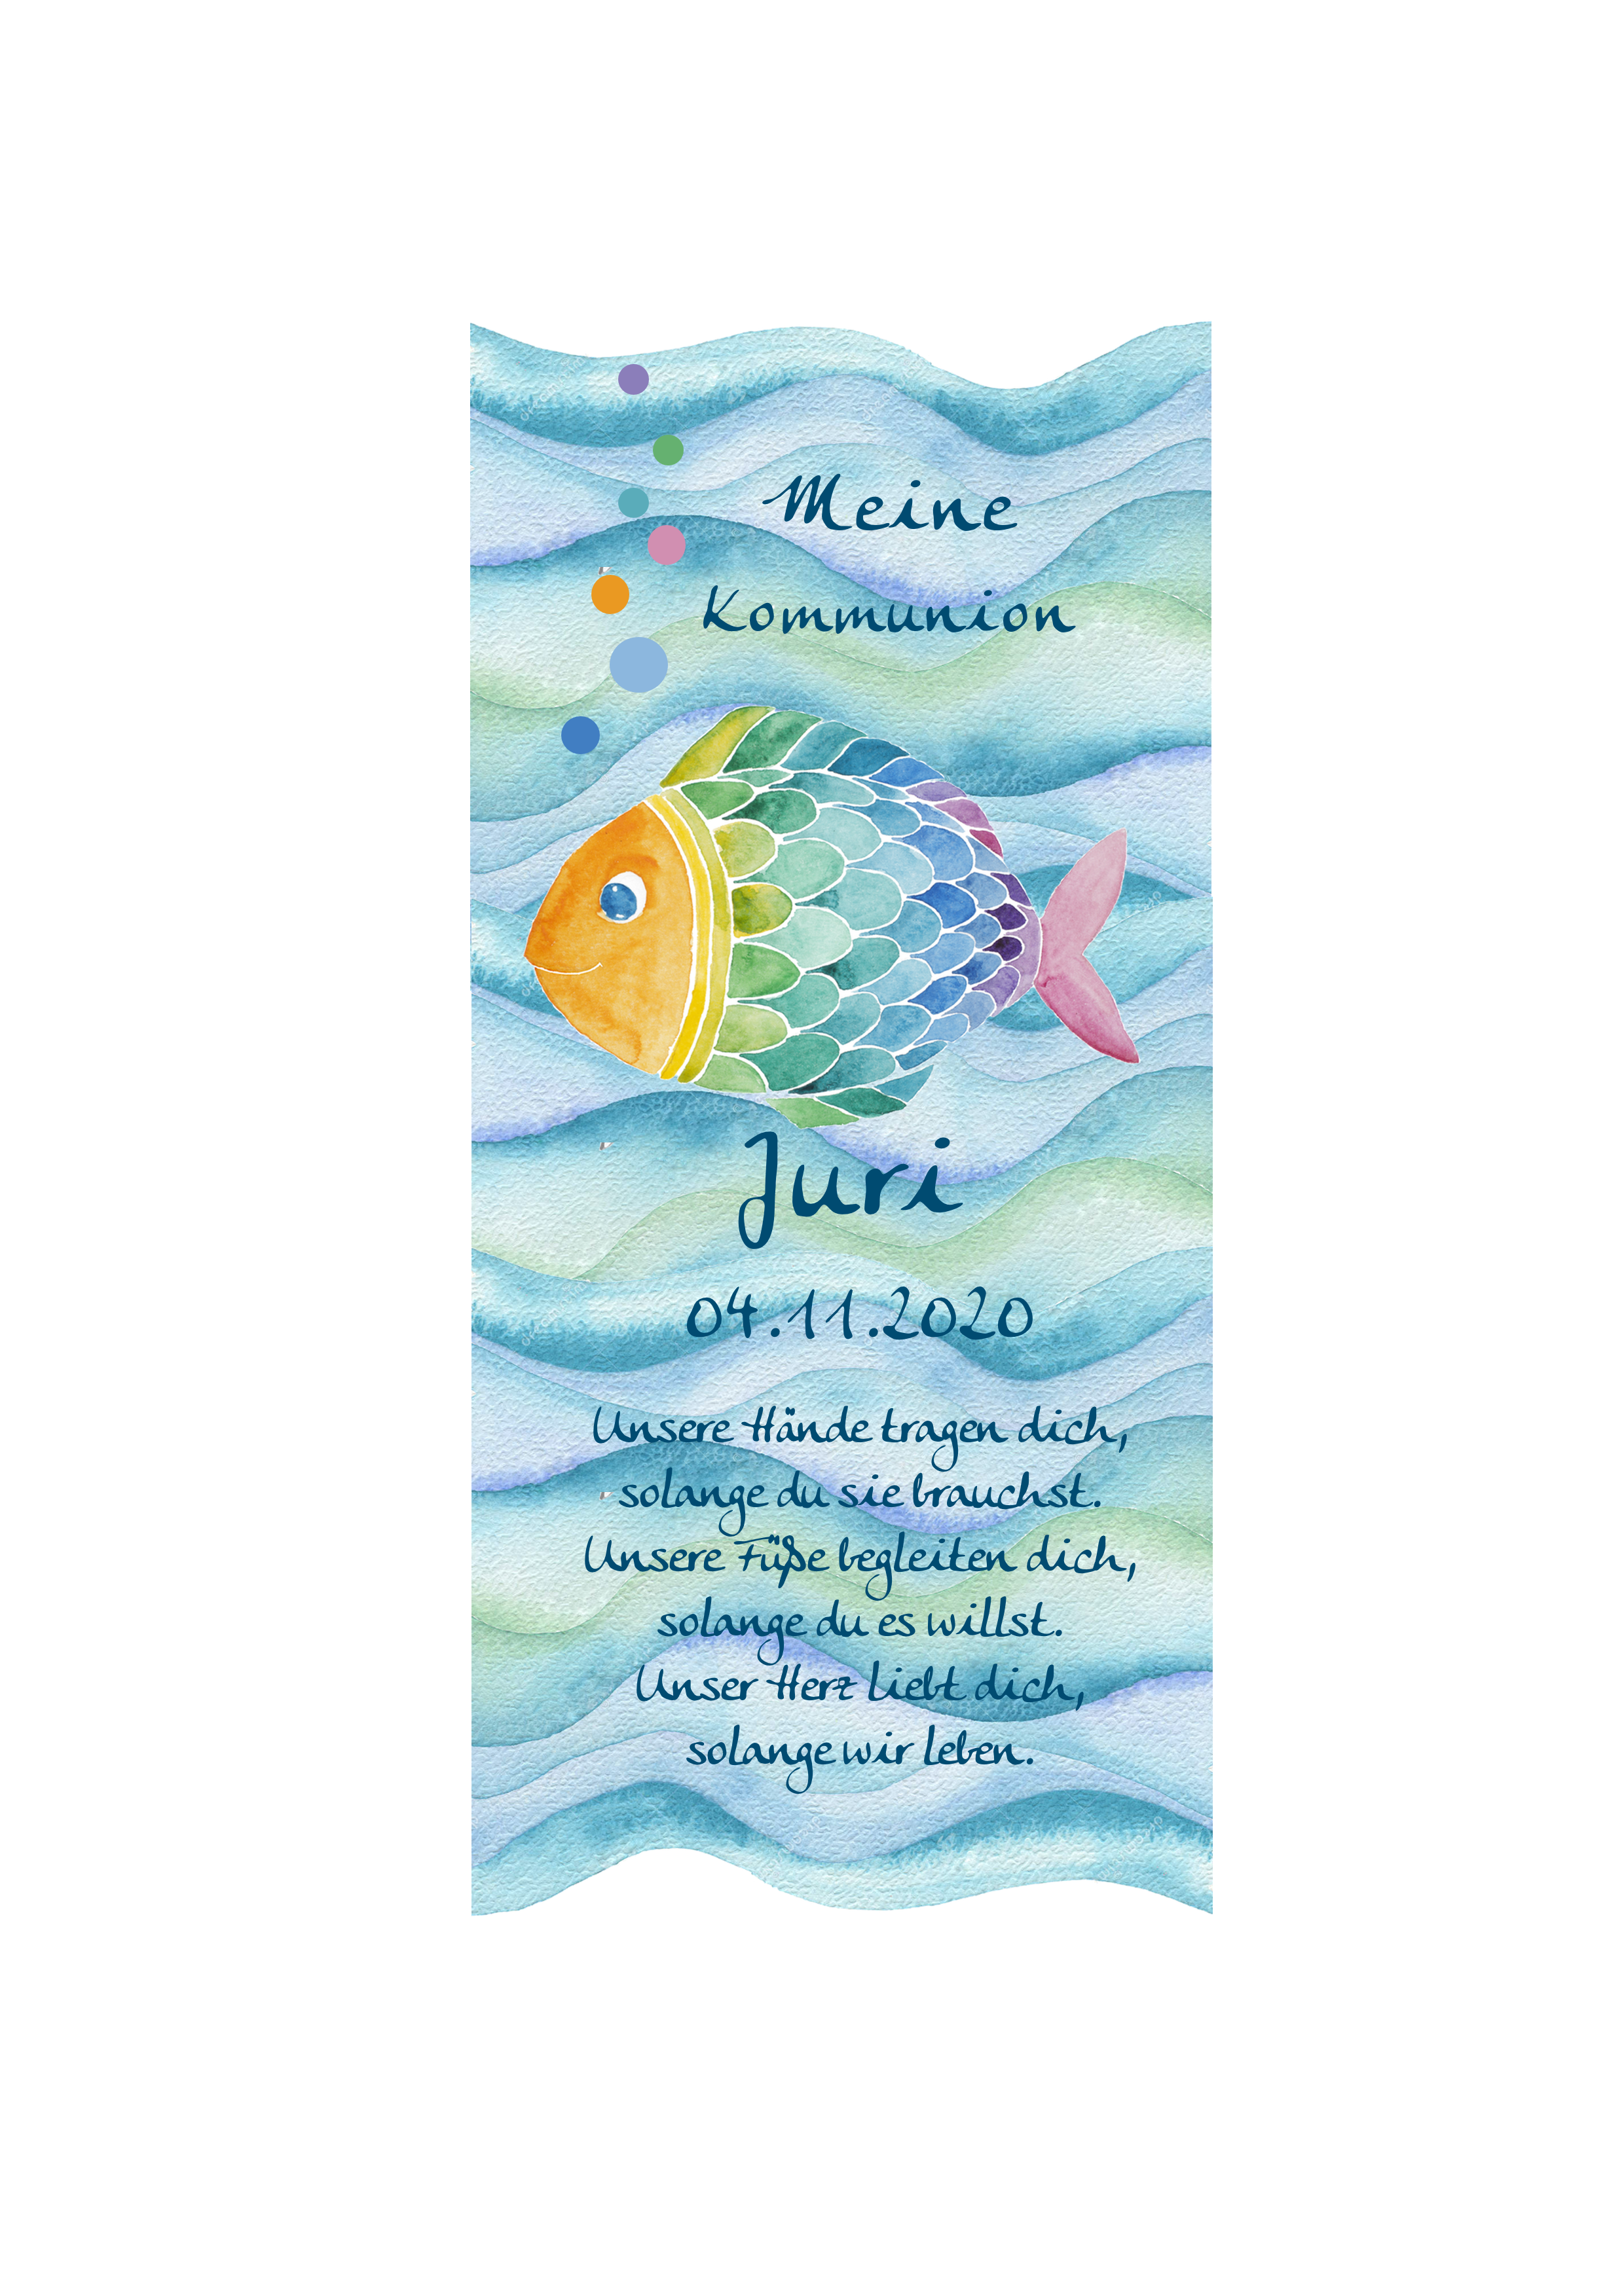 Meine
Kommunion
Juri
04.11.2020
Unsere Hände tragen dich,
solange du sie brauchst.
Unsere Füße begleiten dich,
solange du es willst.
Unser Herz liebt dich,
solange wir leben.